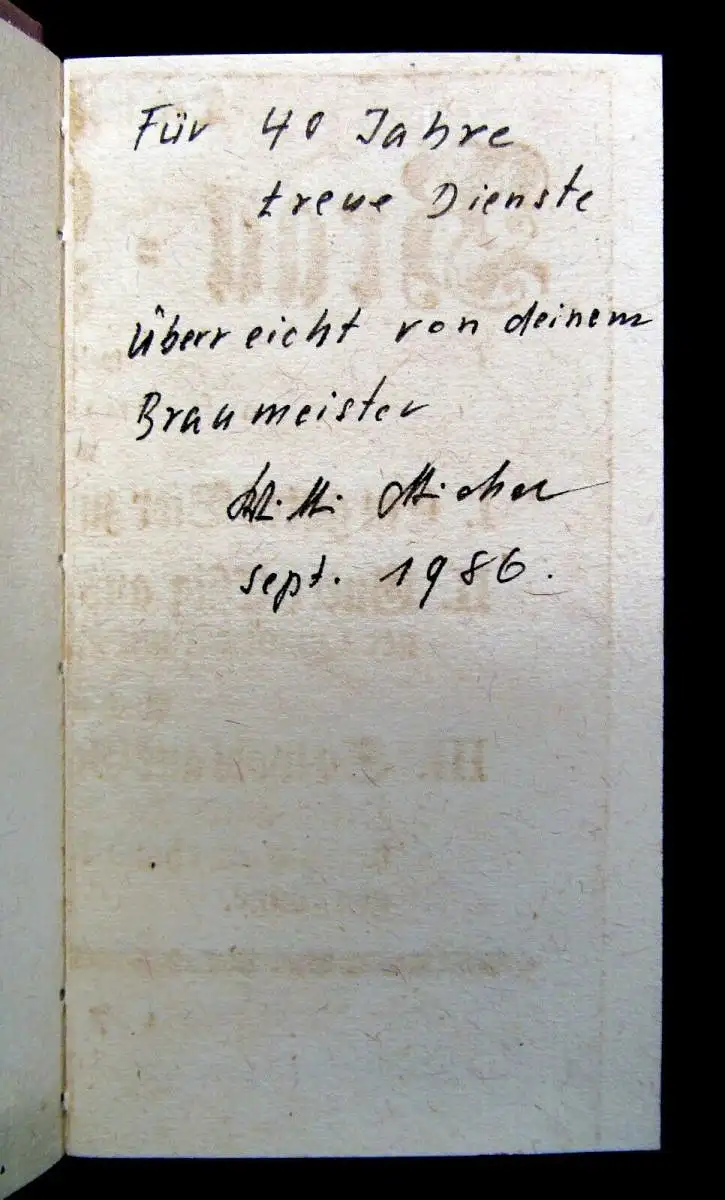 Für 40 Jahre
treue Dienste
Überreicht von deinem
Braumeister
sept. 1986.